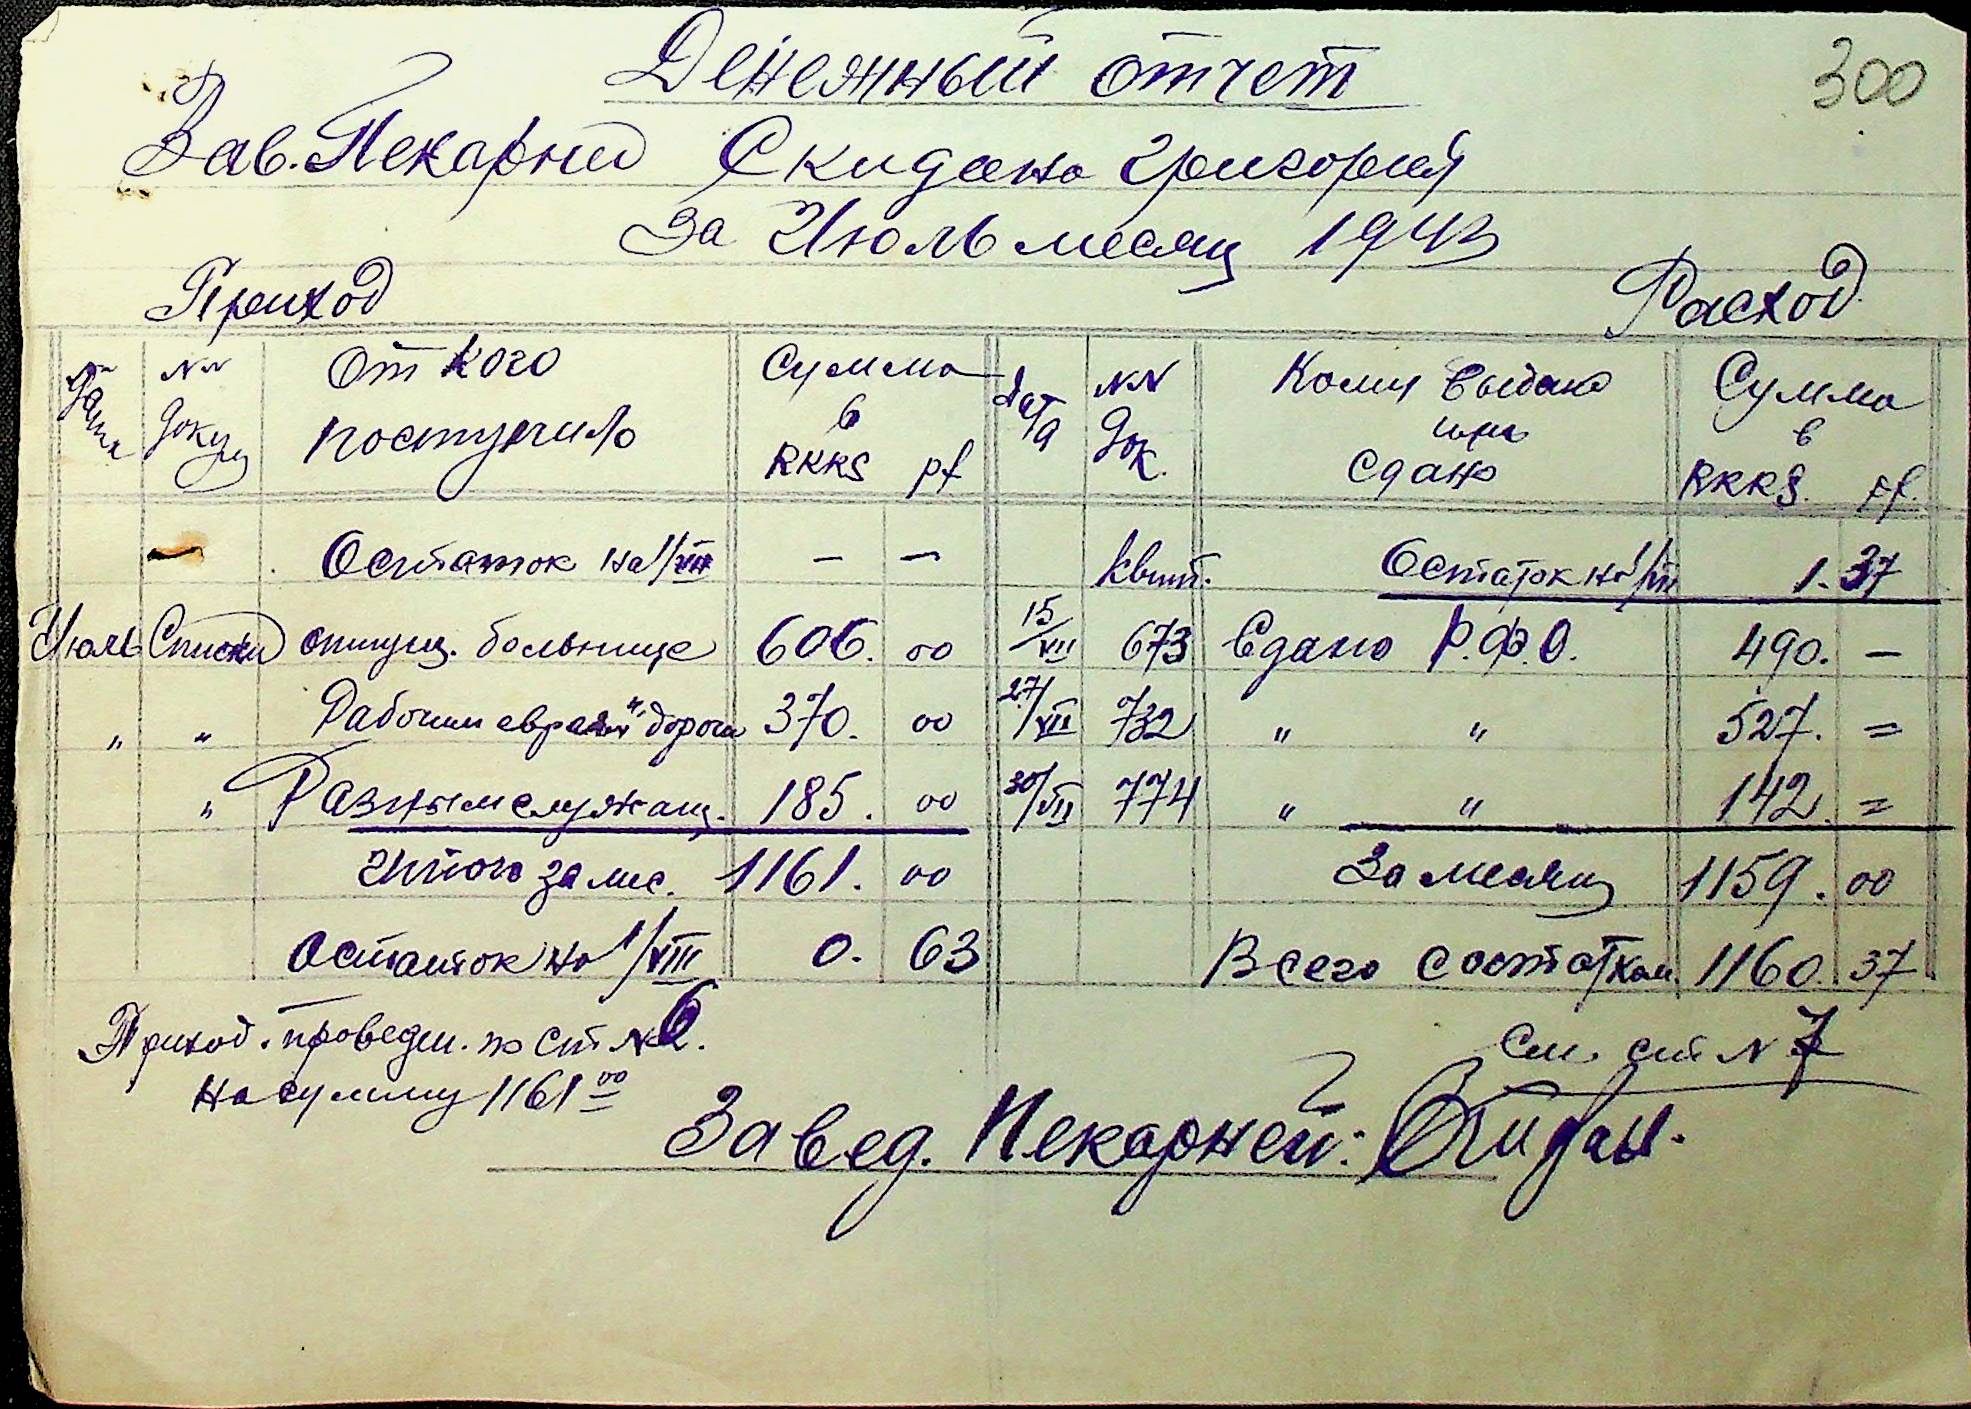 300
Денежный отчет
Зав. Пекарни Скидана Григория
За Июль месяц 1943
Приход Расход
Дата №№ Докум От кого поступило Сумма в RKKS pf Дата №№ Док. Кому выдано или сдано Сумма в RKKS. pf.
— Остаток на 1/VII — — Квит. Остаток на 1/VII 1. 37
Июль Списки отпущ. больнице 606. 00 15/VII 673 Сдано Р.Ф.О. 490. —
" " Рабочим дороги 370. 00 27/VII 732 " " 527. =
" Разным служащ. 185. 00 30/VII 774 " " 142. =
Итого за мес. 1161. 00 За месяц 1159. 00
Остаток на 1/VIII 0. 63 Всего с остатком 1160. 37
Приход. проведен. по ст. № 6.
на сумму 1161 00
См. ст № 7
Завед. Пекарней: Скидан.